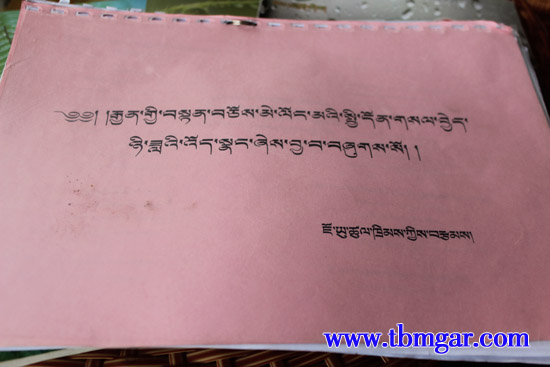 ༄༅། །རྒྱན་གྱི་བསྟན་བཅོས་མེ་ལོང་མའི་སྤྱི་དོན་གསལ་བྱེད་
ཉི་ཟླའི་འོད་སྣང་ཞེས་བྱ་བ་བཞུགས་སོ། །
ཇོ་ཡུ་ཚུལ་ཁྲིམས་ཀྱིས་བརྩམས།
www.tbmgar.com